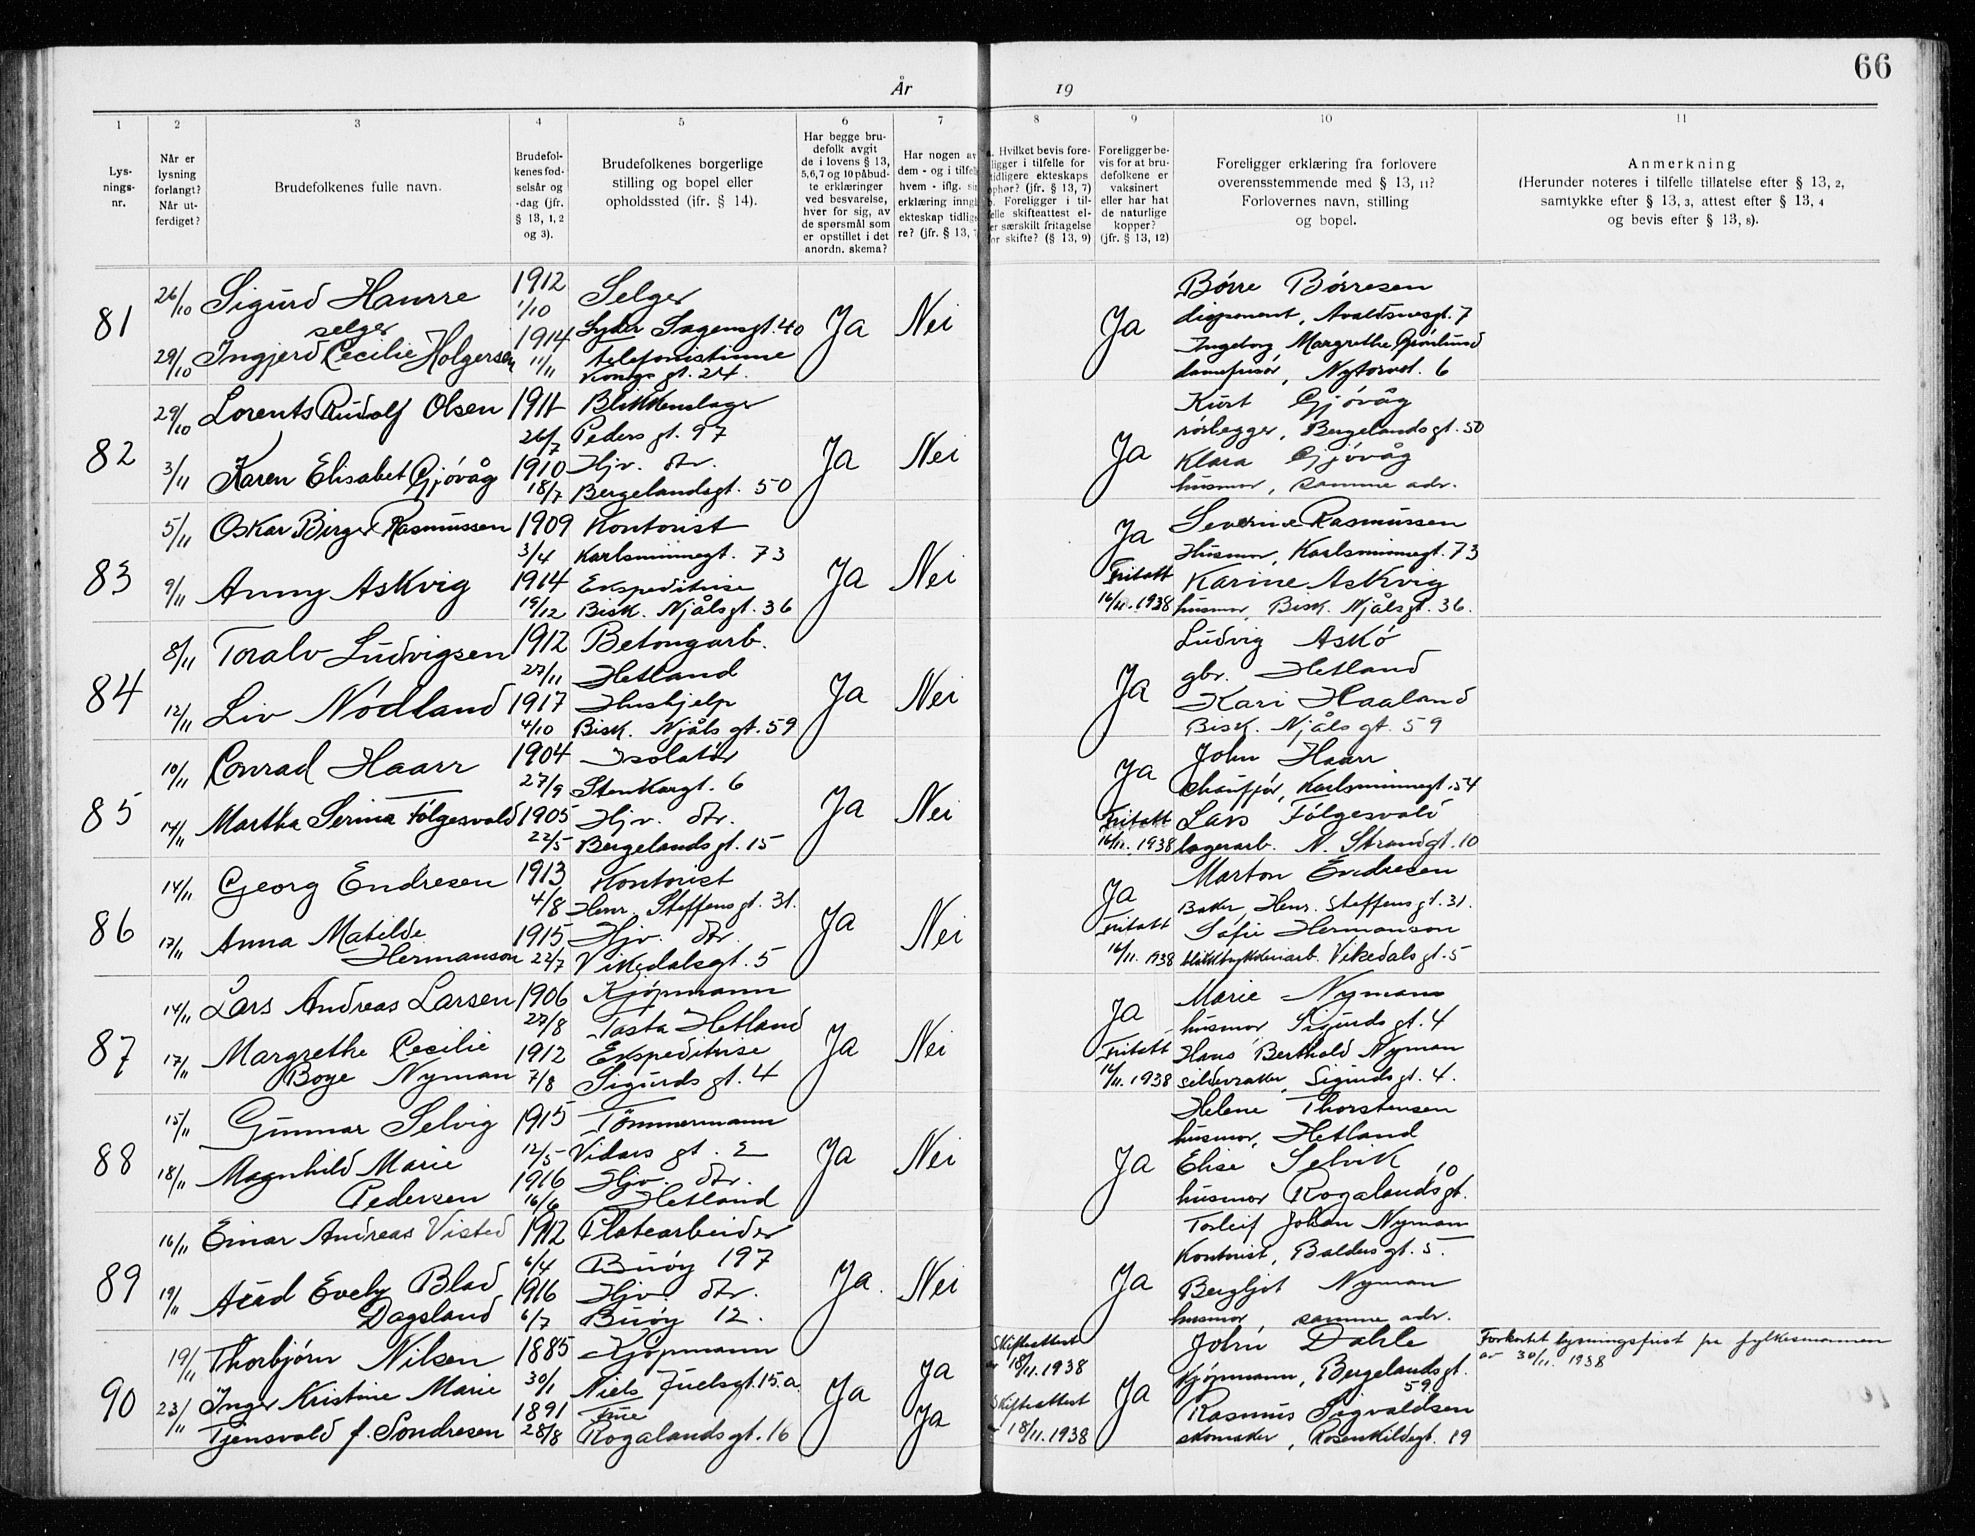 66
År 19
1 2 3 4 5 6 7 8 9 10 11
Lys-
nings-
nr.
Når er
lysning
forlangt?
Når ut-
ferdiget?
Brudefolkenes fulle navn.
Brudefol-
kenes fød-
selsår og
-dag (jfr.
§ 13, 1, 2
og 3).
Brudefolkenes borgerlige
stilling og bopel eller
opholdssted (jfr. § 14).
Har begge bru-
defolk avgit
de i lovens § 13,
5,6,7 og 10 påbud-
te erklæringer
ved besvarelse,
hver for sig, av
de spørsmål som
er opstillet i det
anordn. skema?
Har nogen av
dem - og i tilfel
hvem - iflg. sin
erklæring inng
ekteskap tidlig
re? (jfr. § 13, 7
Hvilket bevis fore-
ligger i tilfelle for
tidligere ekteskaps
ophør? (jfr. § 13, 7)
b. Foreligger i til-
felle skifteattest el-
er særskilt fritagelse
for skifte? (§ 13, 9)
Foreligger be-
vis for at bru-
defolkene er
vaksinert
eller har hat
de naturlige
kopper?
(jfr. § 13, 12)
Foreligger erklæring fra forlovere
overensstemmende med § 13, 11?
Forlovernes navn, stilling
og bopel.
Anmerkning
(Herunder noteres i tilfelle tillatelse efter § 13, 2,
samtykke efter § 13, 3, attest efter § 13, 4
og bevis efter § 13, 8).
81 26/10 Sigurd Haurre 1912 Selger Ja Nei Ja Børre Børresen
selger 1/10 Lyder Sagensgt. 40 disponent, Avaldsnesgt. 7
29/10 Ingjerd Cecilie Holgersen 1914 telefonistinne Ingeborg Margrethe Grønlund
11/11 Kongsgt. 24. damefrisør, Nytorvet. 6
82 29/10 Lorents Rudolf Olsen 1911 Blikkenslager Ja Nei Ja Kurt Gjøvåg
26/7 Peders gt. 97 rørlegger, Bergelandsgt. 50
3/11 Karen Elisabet Gjøvåg 1910 Hjv. dtr. Klara Gjøvåg
18/7 Bergelandsgt. 50 husmor, samme adr.
83 5/11 Oskar Birger Rasmussen 1909 Kontorist Ja Nei Ja Severine Rasmussen
3/4 Karlsminnegt. 73 Husmor, Karlsminnegt. 73
9/11 Anny Askvig 1914 Ekspeditrise Fritatt Karine Askvig
19/12 Bisk. Njålsgt. 36 16/11.1938 husmor, Bisk. Njålsgt. 36.
84 8/11 Toralv Ludvigsen 1912 Betongarb. Ja Nei Ja Ludvig Askø
27/11 Hetland gbr. Hetland
12/11 Liv Nødland 1917 Hushjelp Kari Haaland
4/10 Bisk. Njåls gt. 59 Bisk. Njåls gt. 59
85 10/11 Conrad Haarr 1904 Isolatør Ja Nei Ja John Haarr
27/9 Stenkargt. 6 chauffør, Karlsminnegt. 54
14/11 Martha Serina Følgesvold 1905 Hjv. dtr. Fritatt Lars Følgesvold
22/5 Bergelandsgt. 15 16/11.1938 lagerarb. N. Strandgt. 10
86 14/11 Georg Endresen 1913 Kontorist Ja Nei Ja Marton Endresen
4/8 Henr. Steffensgt. 31. Baker, Henr. Steffensgt. 31.
17/11 Anna Matilde 1915 Hjv. dtr. Fritatt Sofie Hermanson
Hermanson 22/7 Vikedalsgt. 5 16/11. 1938 Vikedalsgt. 5
87 14/11 Lars Andreas Larsen 1906 Kjøpmann Ja Nei Ja Marie Nyman
27/8 Tasta Hetland husmor Sigurdsgt. 4
17/11 Margrethe Cecilie 1912 Ekspeditrise Fritatt Hans Berthold Nyman
Boye Nyman 7/8 Sigurds gt. 4 16/11.1938 sildevraker, Sigurdsgt. 4.
88 15/11 Gunnar Selvig 1915 Tømmermann Ja Nei Ja Helene Thorstensen
12/5 Vidars gt. 2 husmor, Hetland
18/11 Magnhild Marie 1916 Hjv. dtr. Elise Selvik
Pedersen 16/6 Hetland husmor Rogalandsgt. 10
89 16/11 Einar Andreas Visted 1912 Platearbeider Ja. Nei Ja Torleif Johan Nyman
6/4 Buøy 197 Kontorist, Baldersgt. 5.
19/11 Evely Blad 1916 Hjv. dtr. Bergljot Nyman
Dagsland 6/7 Buøy 12. husmor, samme adr.
90 19/11 Thorbjørn Nilsen 1885 Kjøpmann Ja Ja Skifteattest Ja John Dahle Forkortet lysningsfrist fra fylkesmannen
30/1 Niels Juelsgt. 15.a. av 18/11.1938 Kjøpmann, Bergelandsgt. 59 av 30/11. 1938
23/11 Inger Kristine Marie 1891 Frue Ja Skifteattest Rasmus Sigvaldsen
Tjensvold f. Sondresen 28/8 Rogalandsgt. 16 18/11.1938 skomaker, Rosenkildegt. 19